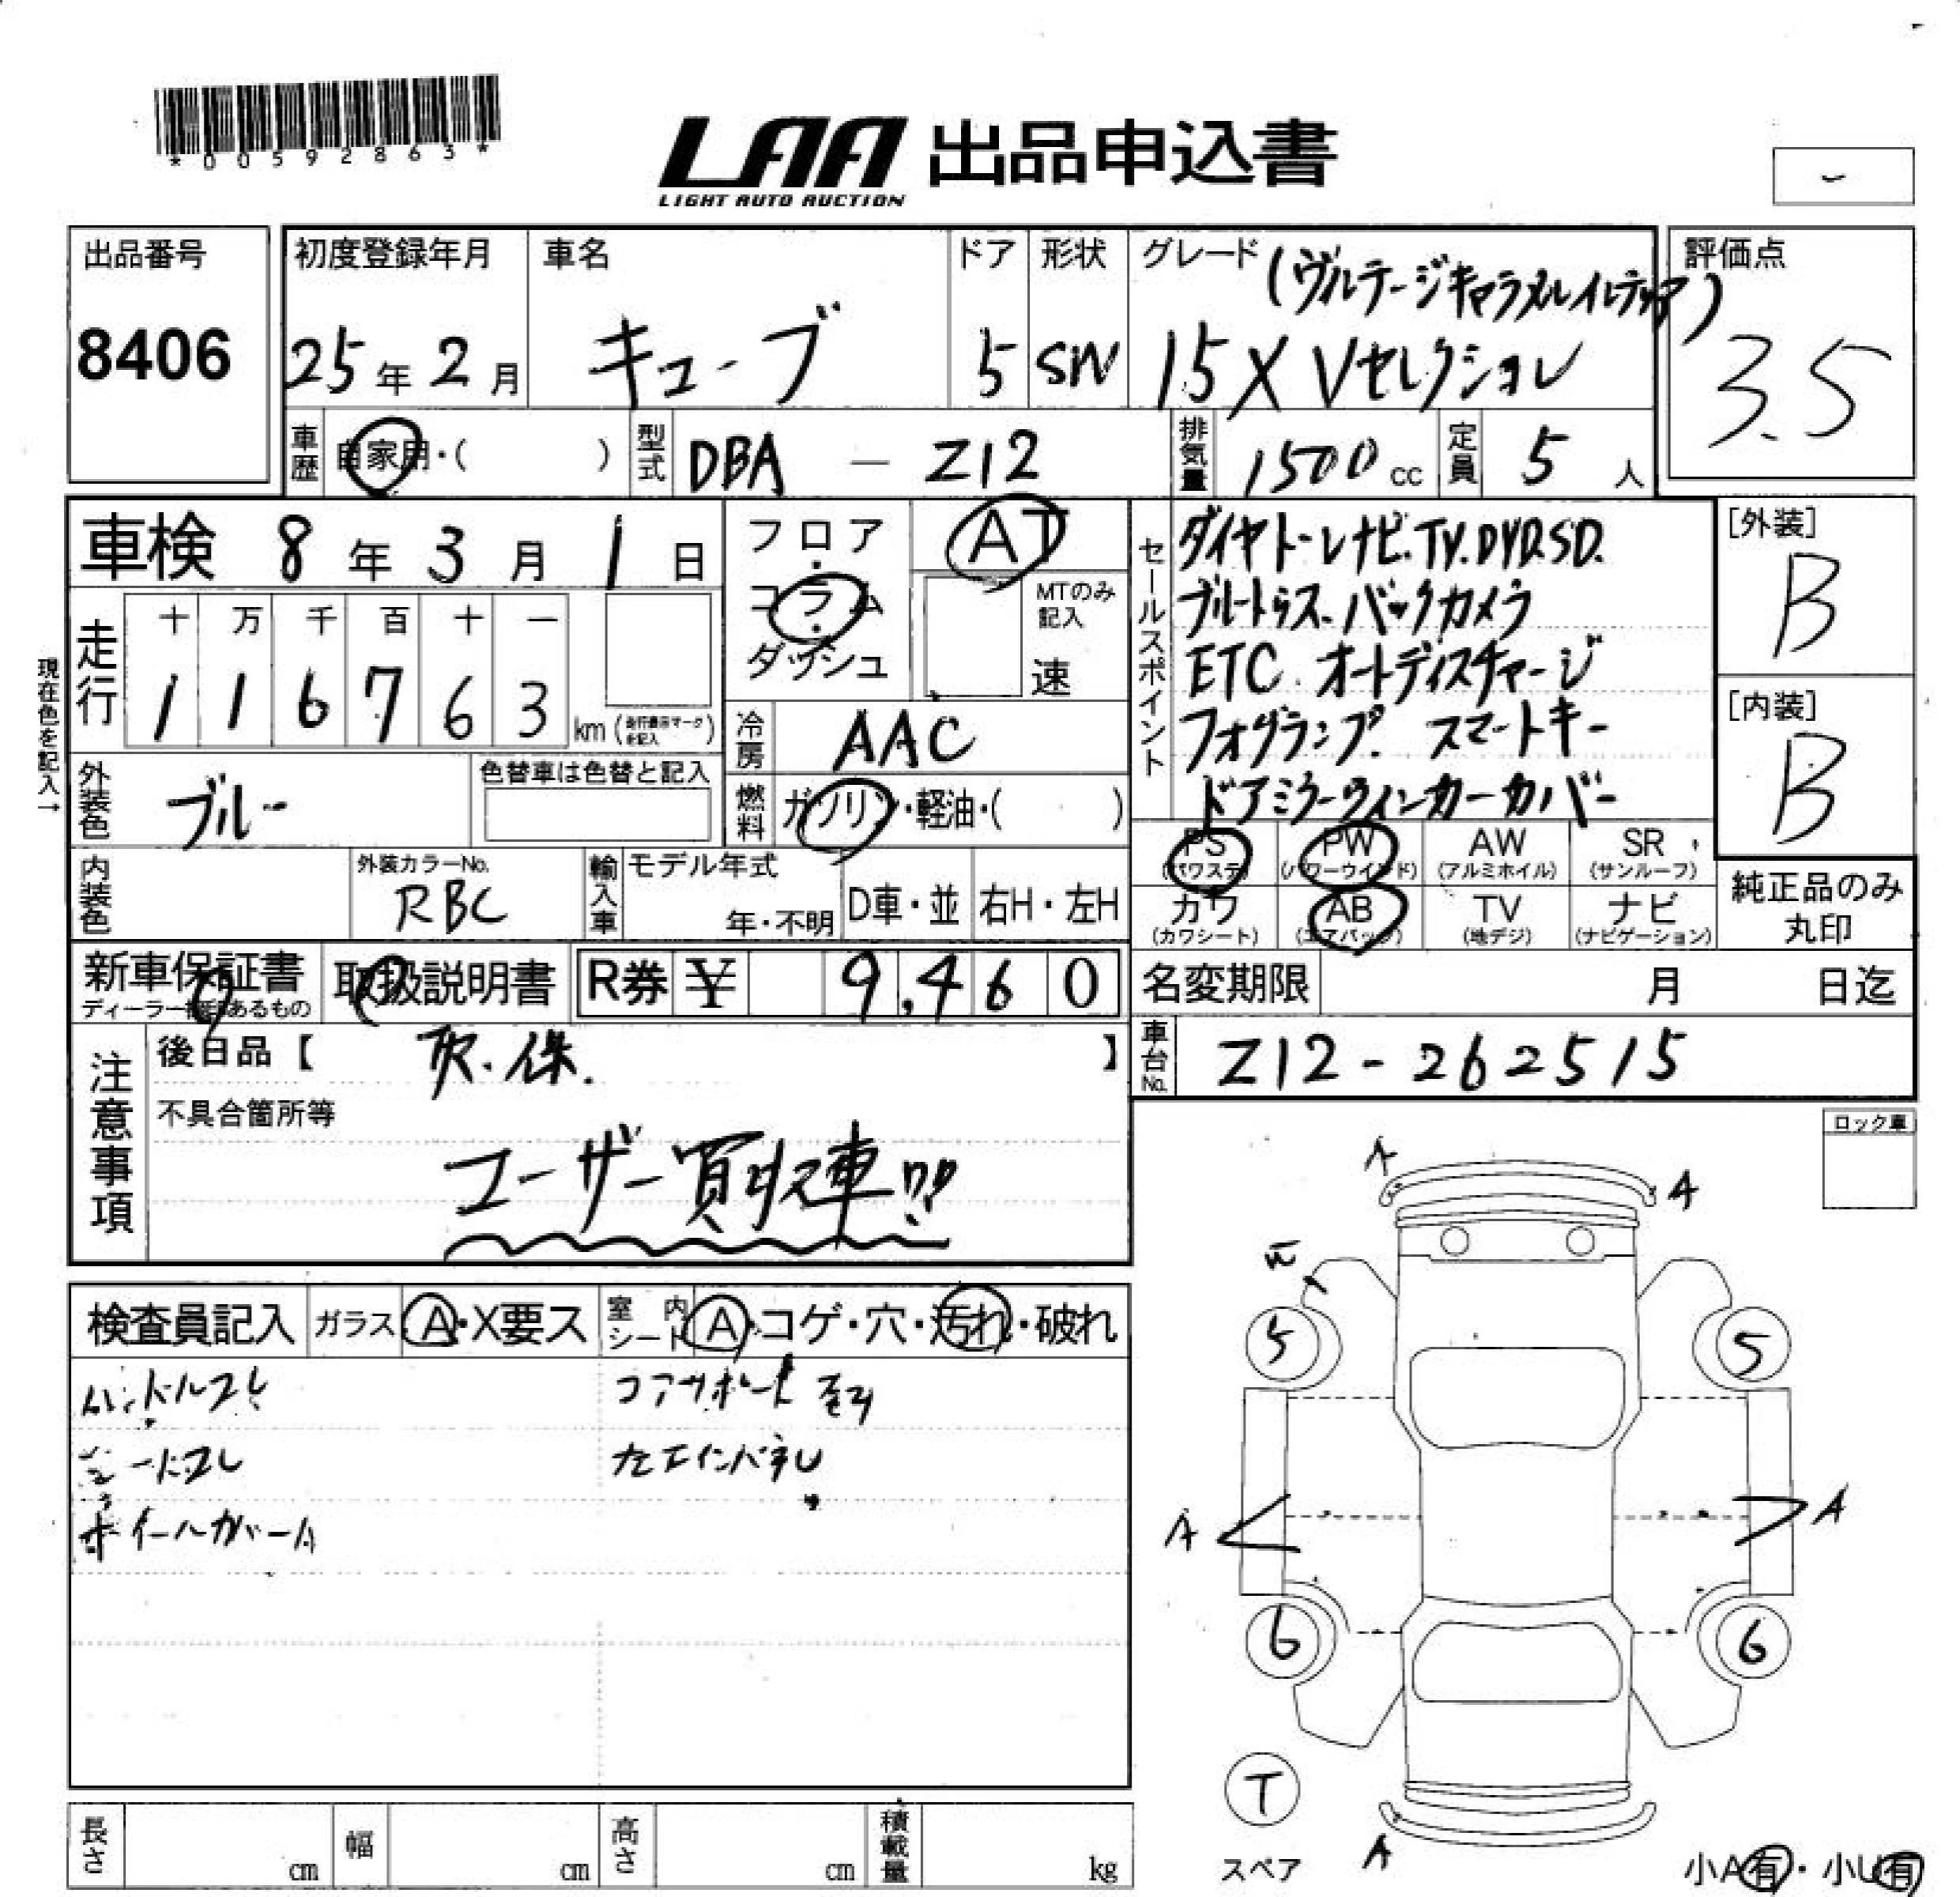 *00592863*
LAA 出品申込書
LIGHT AUTO AUCTION
出品番号
8406
初度登録年月
25年2月
車名
キューブ
ドア
5
形状
SW
グレード
(ヴルテージキャラメルイルディア)
15X Vセレクション
評価点
3.5
車歴
自家用・( )
型式
DBA - Z12
排気量
1500cc
定員
5人
車検 8年3月1日
フロア・コラム・ダッシュ
AT
MTのみ記入
速
現在色を記入→
走行
十 万 千 百 十 一
1 1 6 7 6 3 km
冷房
AAC
外装色
ブルー
色替車は色替と記入
燃料
ガソリン・軽油・( )
内装色
外装カラーNo.
RBC
輸入車
モデル年式
年・不明
D車・並
右H・左H
セールスポイント
ダイヤトーンナビ.TV.DVD.SD.
ブルートゥス.バックカメラ
ETC.オートディスチャージ
フォグランプ.スマートキー
ドアミラーウィンカーカバー
[外装]
B
[内装]
B
PS
(パワステ)
PW
(パワーウインド)
AW
(アルミホイル)
SR
(サンルーフ)
カワ
(カワシート)
AB
(エアバック)
TV
(地デジ)
ナビ
(ナビゲーション)
純正品のみ
丸印
新車保証書
取扱説明書
R券 ¥ 9,460
名変期限 月 日迄
車台No.
Z12-262515
注意事項
後日品【 取.保. 】
不具合箇所等
ユーザー買取車!!
ロック車
検査員記入
ガラス
A・X要ス
室内シート
A・コゲ・穴・汚れ・破れ
ハンドルスレ
シートスレ
ホイールカバーA
コアサポート
左エインパネル
A
A
5
5
A
A
6
6
T
スペア
A
小A有・小U有
長さ cm
幅 cm
高さ cm
積載量 kg